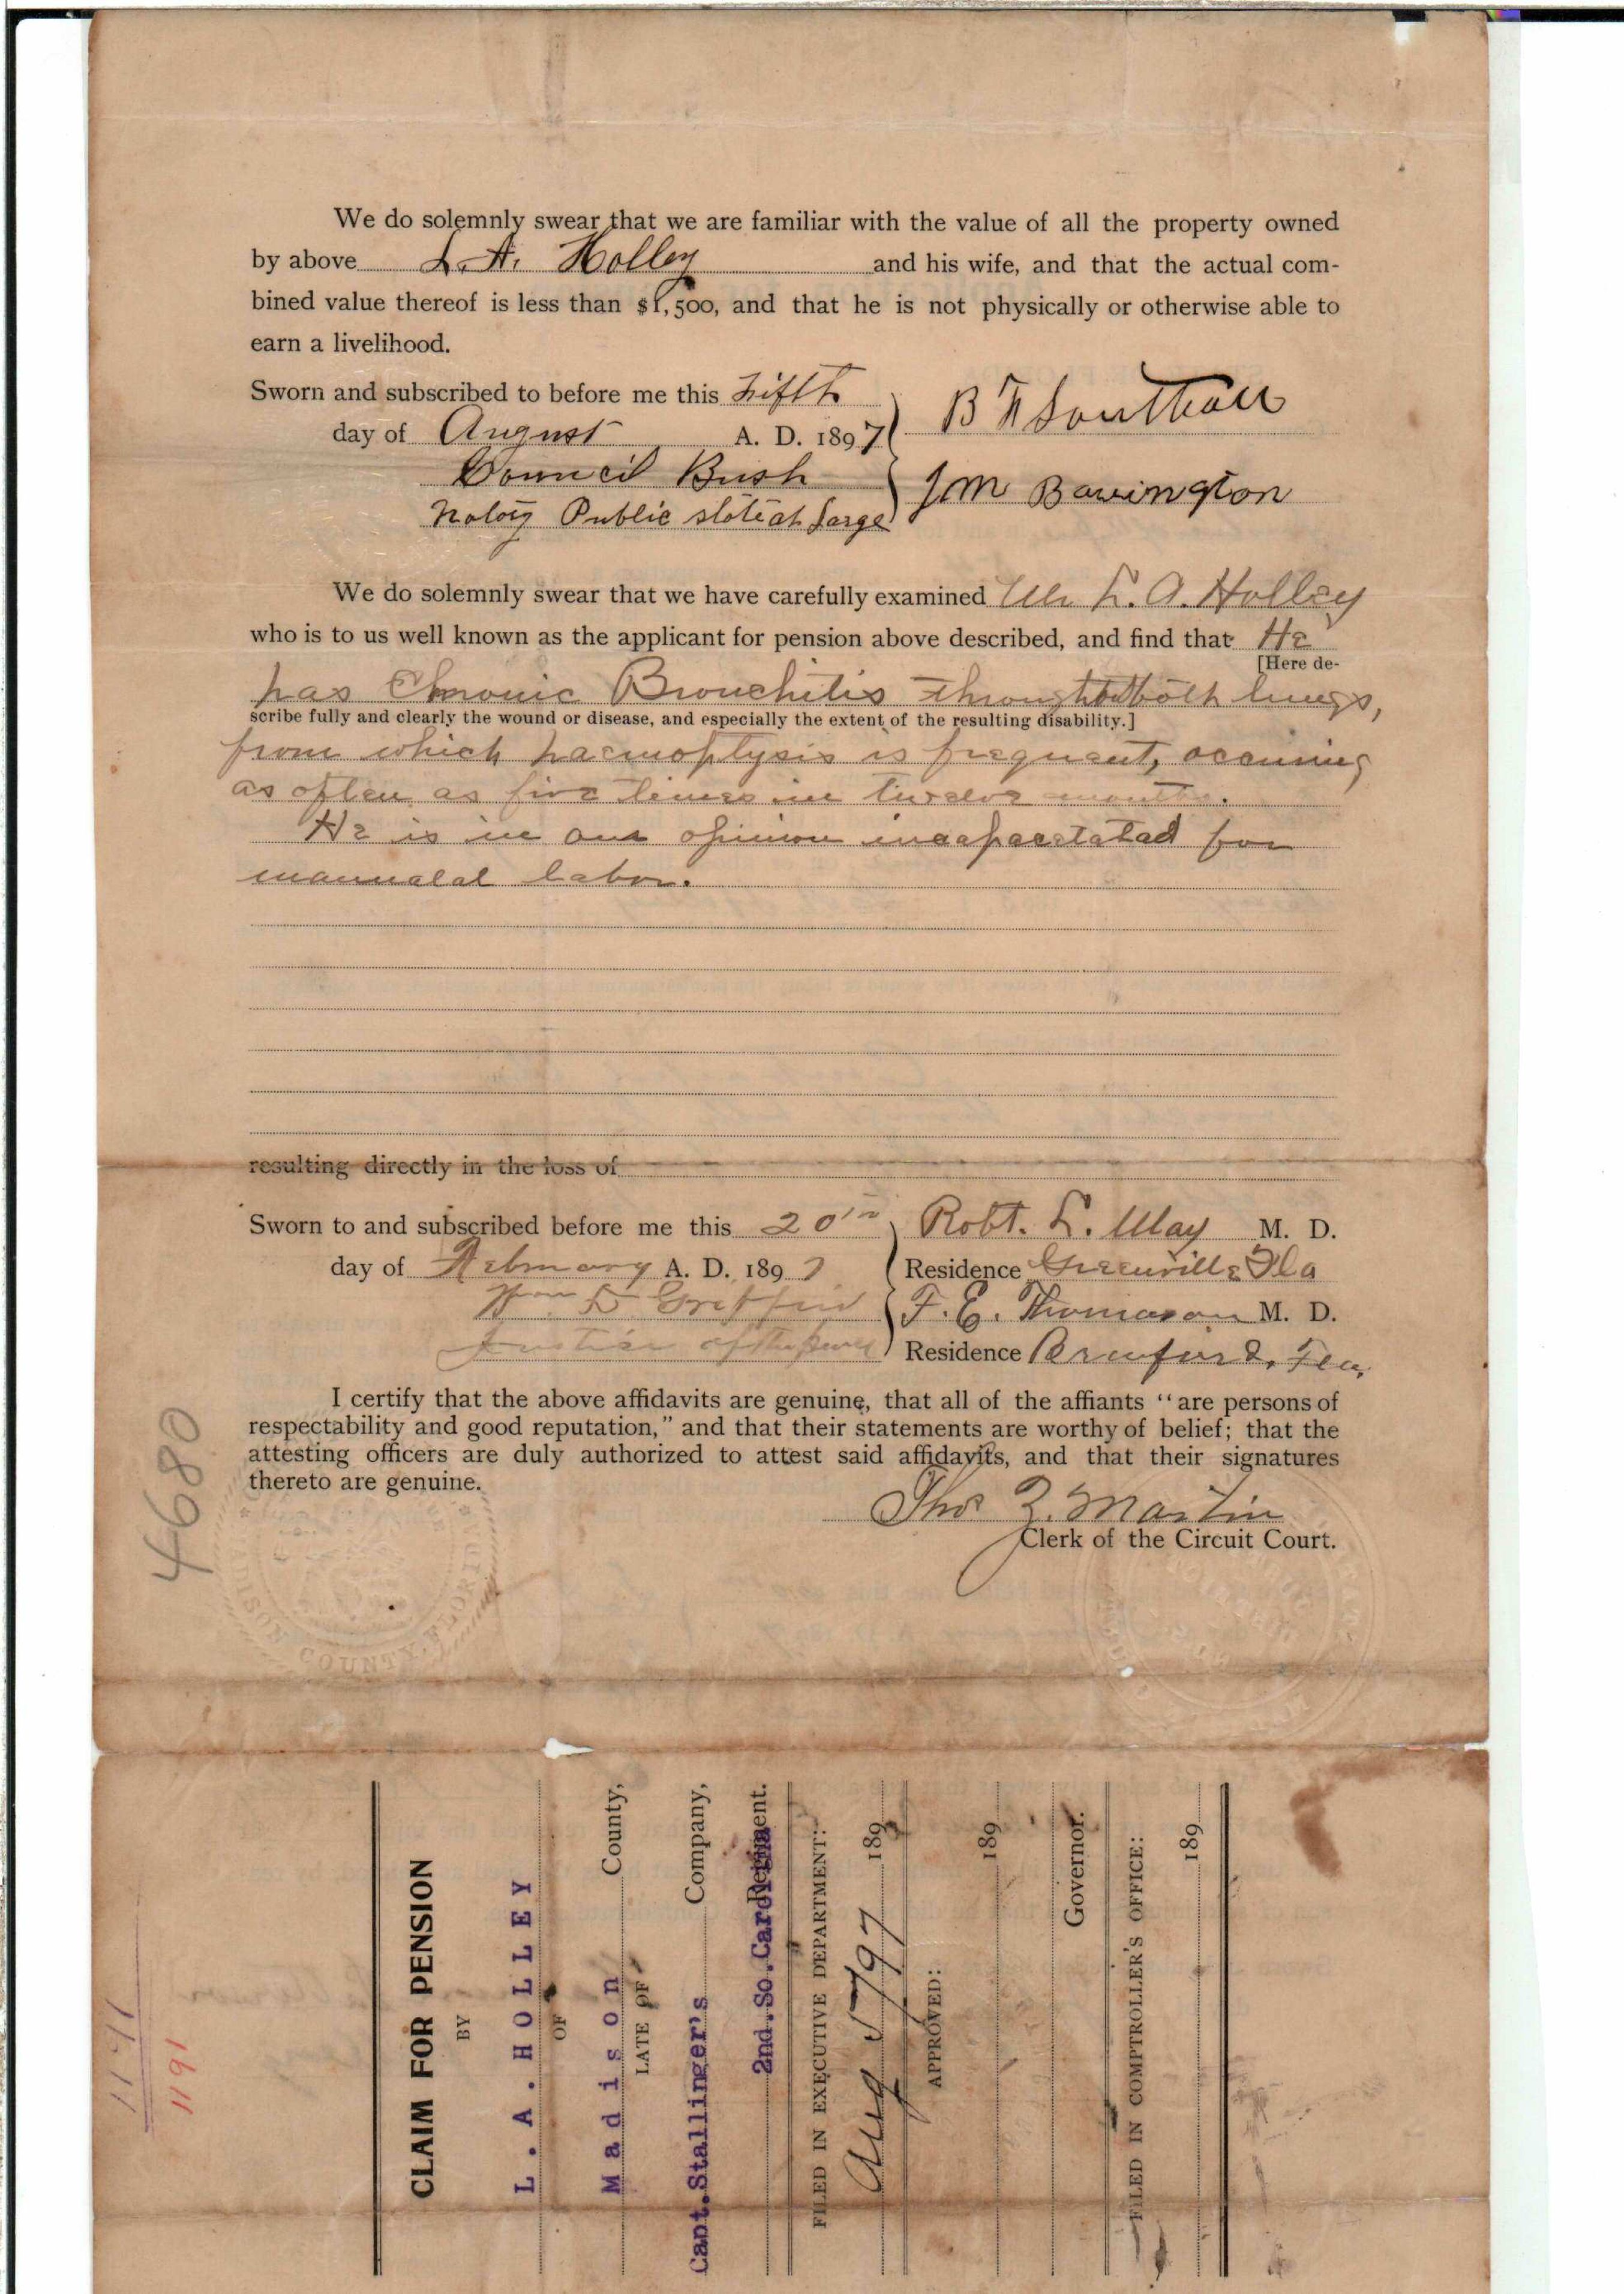 We do solemnly swear that we are familiar with the value of all the property owned
by above L. A. Holley and his wife, and that the actual com-
bined value thereof is less than $1,500, and that he is not physically or otherwise able to
earn a livelihood.
Sworn and subscribed to before me this fifth
day of August A. D. 1897
B F Southall
Council Bush
J M Bavington
Notary Public state at Large
We do solemnly swear that we have carefully examined Mr L. A. Holley
who is to us well known as the applicant for pension above described, and find that He
[Here de-
has Chronic Bronchitis throughout both lungs,
scribe fully and clearly the wound or disease, and especially the extent of the resulting disability.]
from which haemoptysis is frequent, occuring
as often as five times in twelve months.
He is in our opinion incapacitated for
mannalal labor.
resulting directly in the loss of
Sworn to and subscribed before me this 20th
Robt. L. May M. D.
day of February A. D. 1897
Residence Greenville Fla
Wm D Griffin
F. E. Thomason M. D.
Justice of the peace
Residence Branford, Fla,
I certify that the above affidavits are genuine, that all of the affiants "are persons of
respectability and good reputation," and that their statements are worthy of belief; that the
attesting officers are duly authorized to attest said affidavits, and that their signatures
thereto are genuine.
Thos Z. Martin
Clerk of the Circuit Court.
4680
MADISON COUNTY, FLORIDA
CLAIM FOR PENSION
BY
L. A. HOLLEY
OF
Madison County,
LATE OF
Capt. Stallinger's Company,
2nd. So. Carolina Regiment.
FILED IN EXECUTIVE DEPARTMENT:
Aug 5/97 189
APPROVED:
189
Governor.
FILED IN COMPTROLLER'S OFFICE:
189
1191
1191